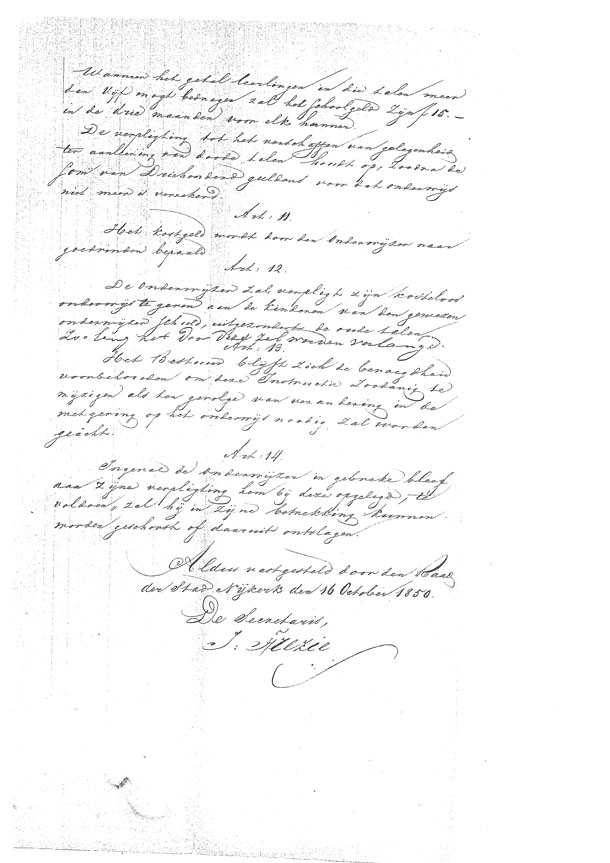 Wanneer het getal leerlingen in die talen meer
dan vijf mogt bedragen zal het schoolgeld zijn f 15.-
in de drie maanden voor elk hunner.
De verpligting tot het verschaffen van gelegenheid
ter aanleering van doode talen houdt op, zoodra de
som van Driehonderd guldens voor dat onderwijs
niet meer is verzekerd.
Art: 11.
Het kostgeld wordt door den Onderwijzer naar
goedvinden bepaald
Art: 12.
De Onderwijzer zal verpligt zijn kosteloos
onderwijs te geven aan de kinderen van den gewezen
onderwijzer uitgezonderd de oude talen,
Zoo lang het door dezen zal worden verlangd.
Art: 13.
Het Bestuur blijft zich de bevoegdheid
voorbehouden om deze Instructie zoodanig te
wijzigen als ten gevolge van verandering in de
wetgeving op het onderwijs noodig zal worden
geächt.
Art: 14.
Ingeval de onderwijzer in gebreke bleef
aan zijne verpligting hem bij deze opgelegd, te
voldoen, zal hij in zijne betrekking kunnen
worden geschorst of daaruit ontslagen.
Aldus vastgesteld door den Raad
der Stad Nijkerk den 16 October 1850.
De Secretaris,